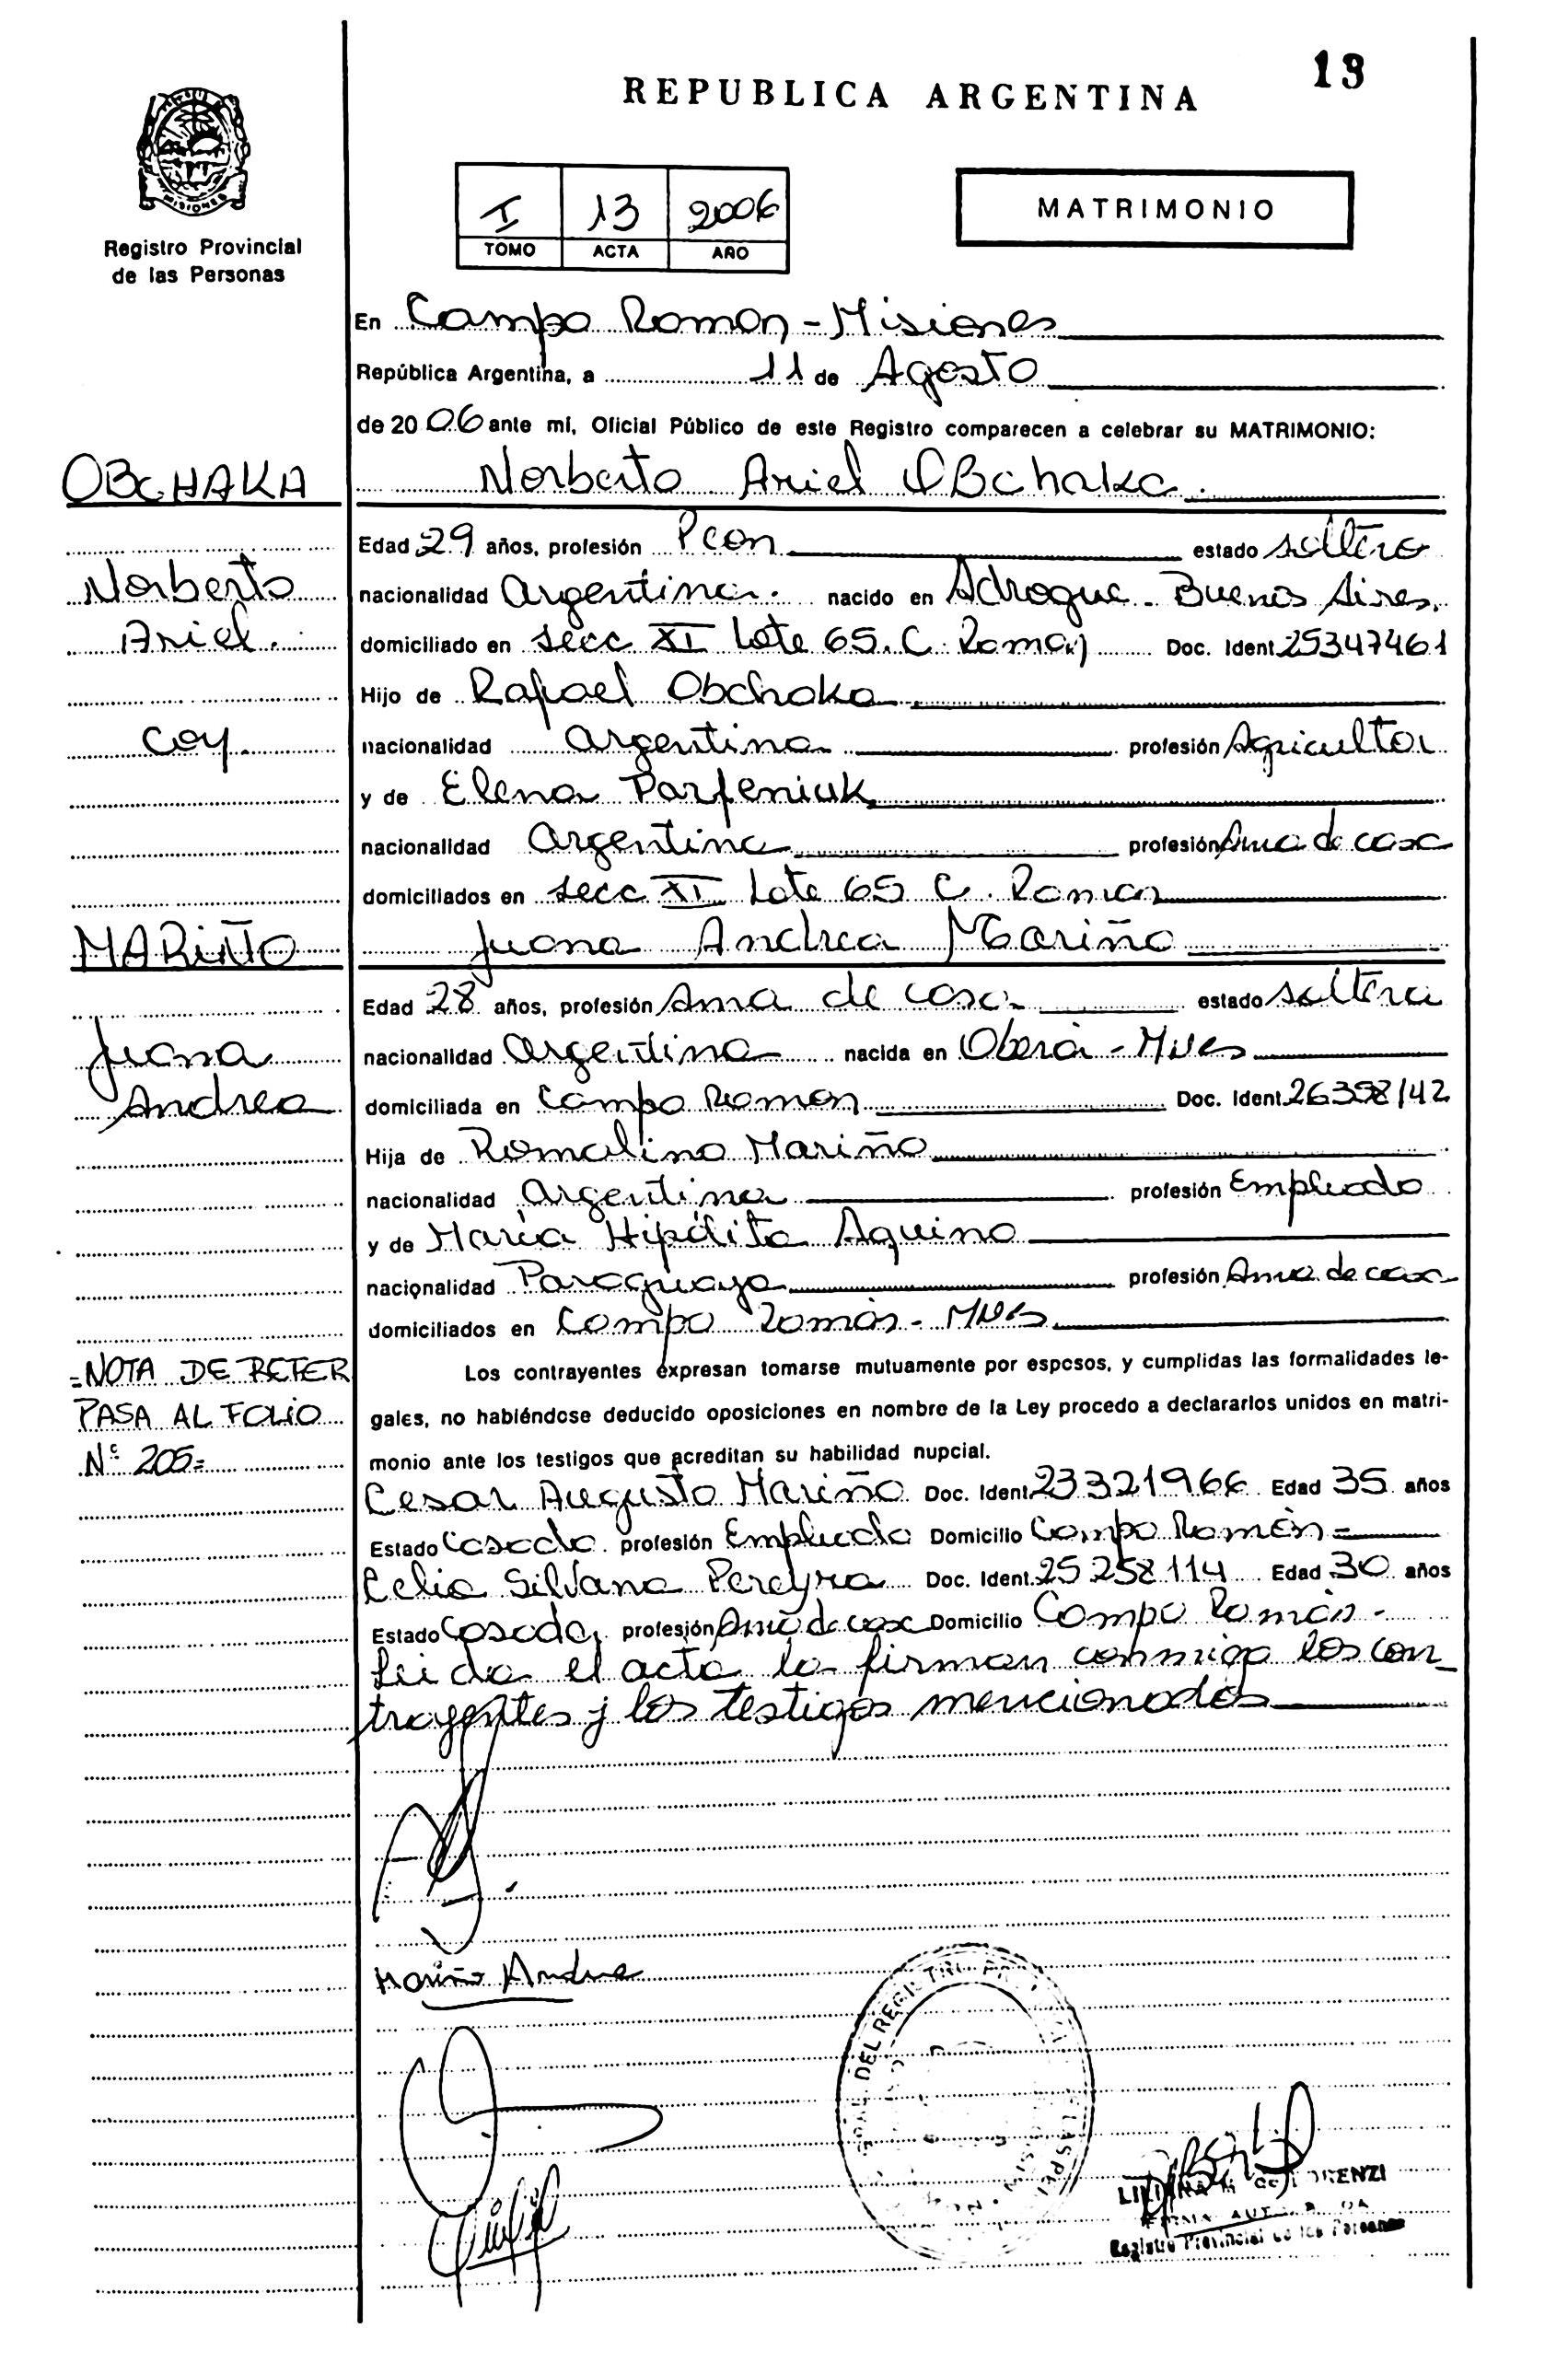 13
REPUBLICA ARGENTINA
MISIONES
Registro Provincial
de las Personas
I 13 2006
TOMO ACTA AÑO
MATRIMONIO
En Campo Ramon - Misiones
República Argentina, a 11 de Agosto
de 2006 ante mí, Oficial Público de este Registro comparecen a celebrar su MATRIMONIO:
OBCHAKA
Norberto Ariel OBchaka
Edad 29 años, profesión Peon estado soltero
Norberto
nacionalidad Argentina. nacido en Adrogue - Buenos Aires.
Ariel.
domiciliado en secc XI Lote 65. C. Ramon Doc. Ident. 25347461
Hijo de Rafael Obchaka
coy.
nacionalidad argentina profesión Agricultor
y de Elena Parfeniuk
nacionalidad Argentina profesión Ama de casa
domiciliados en secc XI Lote 65 C. Ramon
MARIÑO
Juana Andrea Mariño
Edad 28 años, profesión Ama de casa estado soltera
Juana
nacionalidad Argentina nacida en Oberá - Mnes
Andrea
domiciliada en Campo Ramon Doc. Ident.
Hija de Romalino Mariño
nacionalidad Argentina profesión Empleado
y de María Hipólita Aquino
nacionalidad Paraguaya profesión Ama de casa
domiciliados en Campo Ramón - Mnes
=NOTA DE REFER
PASA AL FOLIO
Nº 205=
Los contrayentes expresan tomarse mutuamente por esposos, y cumplidas las formalidades le-
gales, no habiéndose deducido oposiciones en nombre de la Ley procedo a declararlos unidos en matri-
monio ante los testigos que acreditan su habilidad nupcial.
Cesar Augusto Mariño Doc. Ident. 23321966 Edad 35 años
Estado Casado profesión Empleado Domicilio Campo Ramón =
Celia Silvana Pereyra Doc. Ident. 25 258 114 Edad 30 años
Estado Casada profesión Ama de casa Domicilio Campo Ramón -
Leida el acta la firman conmigo los con-
trayentes y los testigos mencionados
Mariño Andrea
DEL REGISTRO
Registro Provincial de las Personas